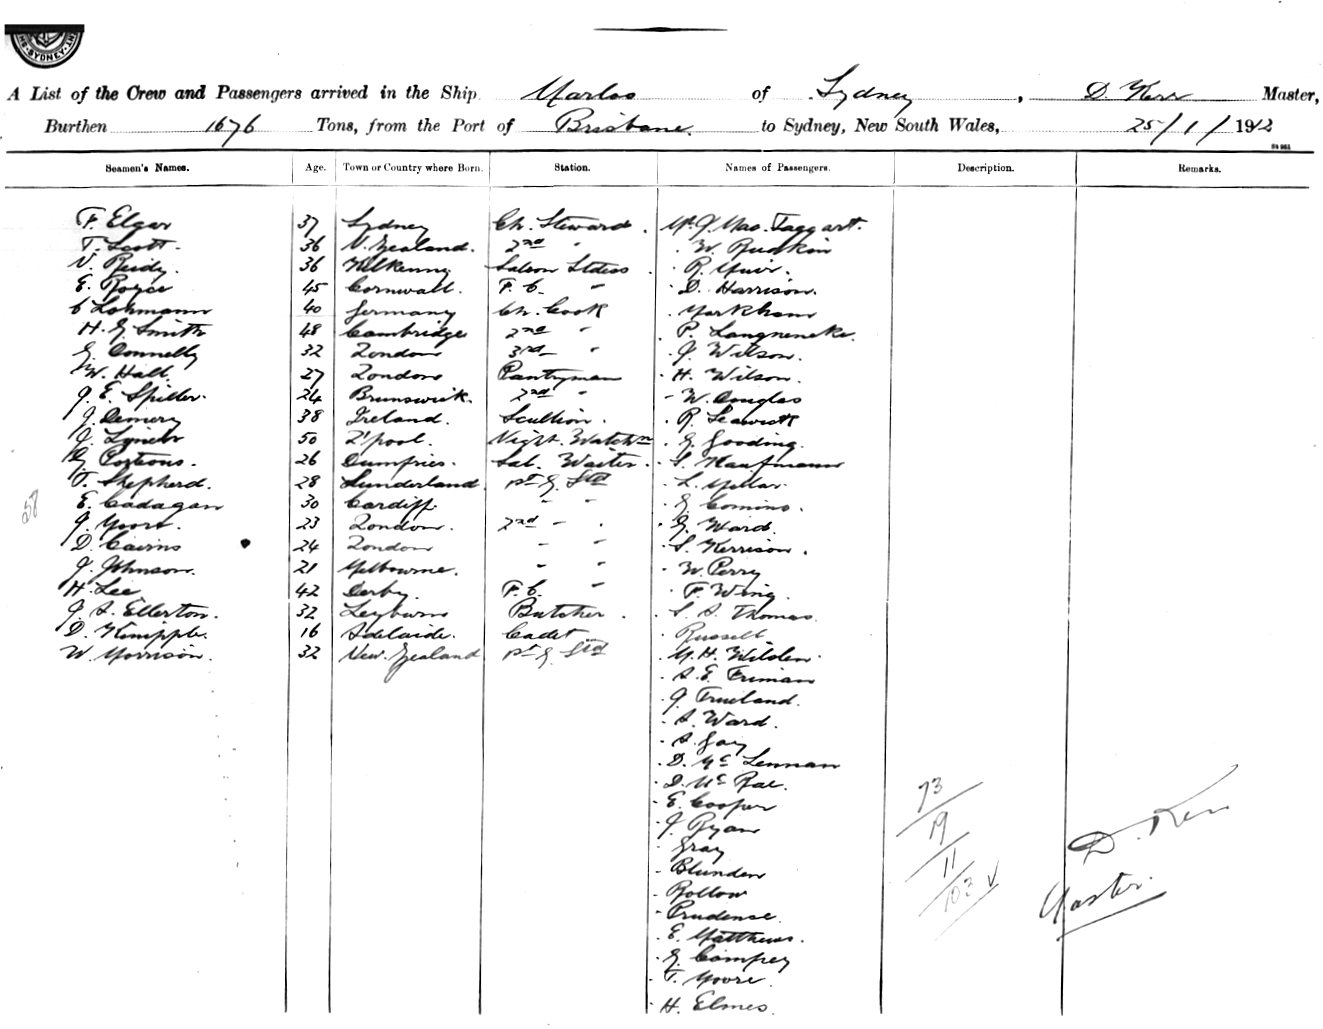 SYDNEY
A List of the Crew and Passengers arrived in the Ship Marloo of Sydney, D. Kerr Master,
Burthen 1676 Tons, from the Port of Brisbane. to Sydney, New South Wales, 25/1/1912
Seamen's Names. Age. Town or Country where Born. Station. Names of Passengers. Description. Remarks.
F. Elgar 37 Sydney Ch. Steward. Mac Taggart.
T. Scott. 36 N. Zealand. 2nd " W. Ruskin
N. Reidy. 36 Kilkenny Saloon Stdess R. Muir.
E. Royce 45 Cornwall. F. C. " D. Harrison.
C Lohmann 40 Germany Ch. Cook Markham
H. G. Smith 48 Cambridge 2nd " P. Langneneke.
G. Connelly 32 London 3rd " J. Wilson.
W. Hall 27 London Pantryman H. Wilson.
J. E. Spiller. 24 Brunswick. 2nd " W. Douglas
J. Demery 38 Ireland. Scullion. R.
J. Lynch 50 L'pool. Night Watchn G. Gooding.
G. Porteous. 26 Dumfries. Sal. Waiter. S. Kaufmann
T. Shepherd. 28 Sunderland. L. Millar.
E. Cadagan 30 Cardiff " " G. Comino.
J. Moore. 23 London. 2nd " " G. Ward.
D. Cairns 24 London " " S. Kerrison.
J. Johnson. 21 Melbourne. " " W. Perry
H. Lee 42 Derby. F. C. " F. Wing.
J. S. Ellerton. 32 Leyburn Butcher. S. S. Thomas
D. Whipple. 16 Adelaide. Cadet Russell
W. Morrison. 32 New Zealand M. H. Wilslen.
A. E. Friman
J. Trueland.
A. Ward.
A. Gay
D. Mc Lennan
D. Mc Rae.
E. Cooper
J. Ryan
Gray
Blunden
Rollow
Prudense.
E. Matthews.
G. Compey
T. Moore.
H. Elmes.
58
73
19
11
103 ✓
D. Kerr
Master.